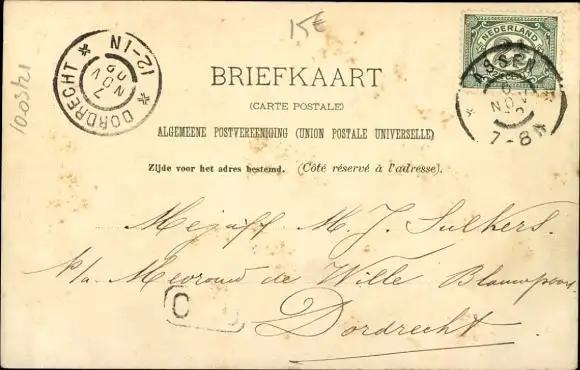 15€
100521
NEDERLAND
ASSEN
NOV
7-8 N
DORDRECHT
7
NOV
00
12-1N
BRIEFKAART
(CARTE POSTALE)
ALGEMEENE POSTVEREENIGING (UNION POSTALE UNIVERSELLE)
Zijde voor het adres bestemd. (Côté réservé à l'adresse).
Mejuff. M. J. Sulkers.
p/a Mevrouw de Wille Blauwpoort
Dordrecht